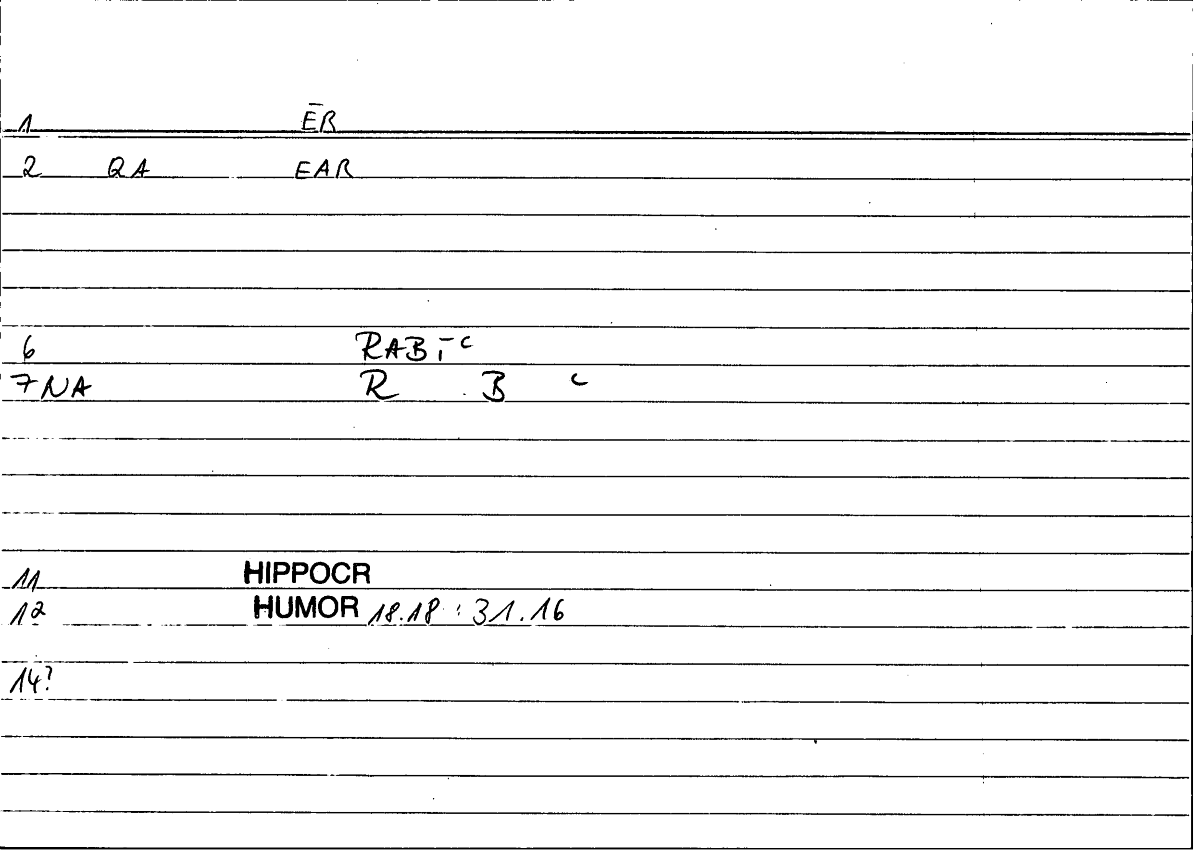 1 ĒR
2 QA EAR
6 RABĪ ᶜ
7 NA R B ᶜ
11 HIPPOCR
12 HUMOR 18.18 : 31.16
14?